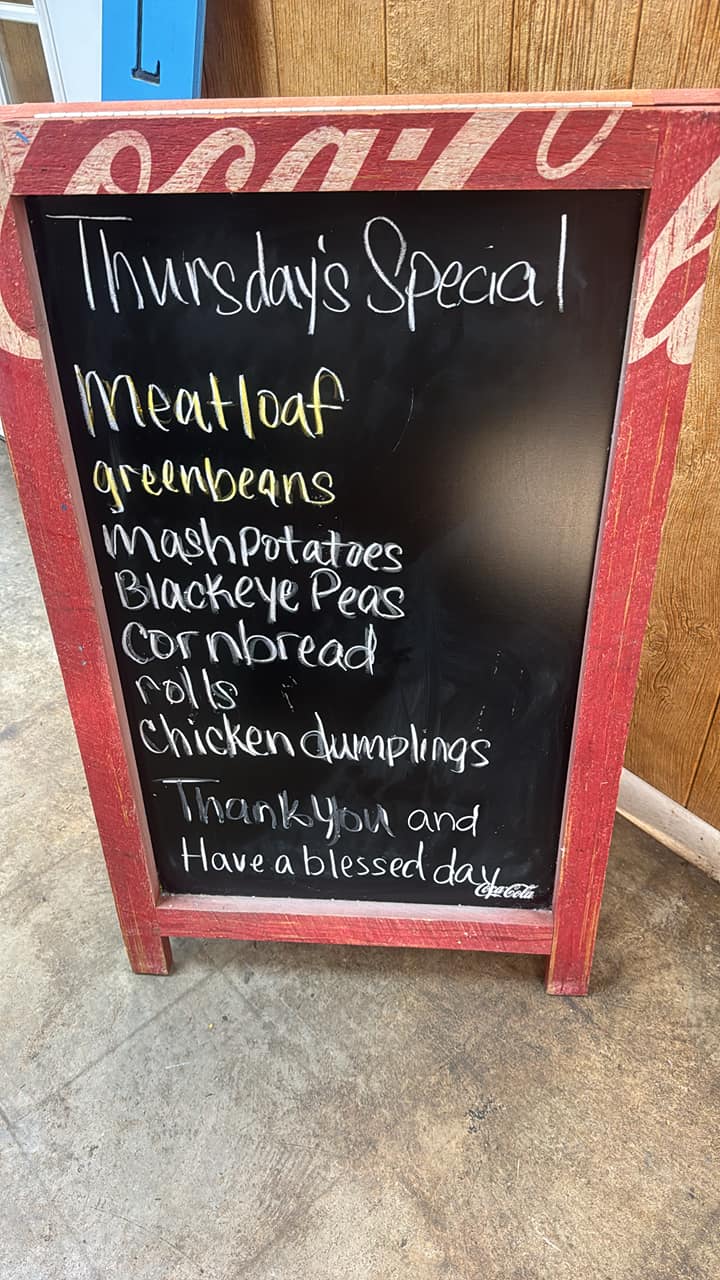 Coca-Cola
Thursday's Special
Meatloaf
greenbeans
mashpotatoes
Blackeye Peas
Cornbread
rolls
chicken dumplings
Thank you and
Have a blessed day
Coca-Cola